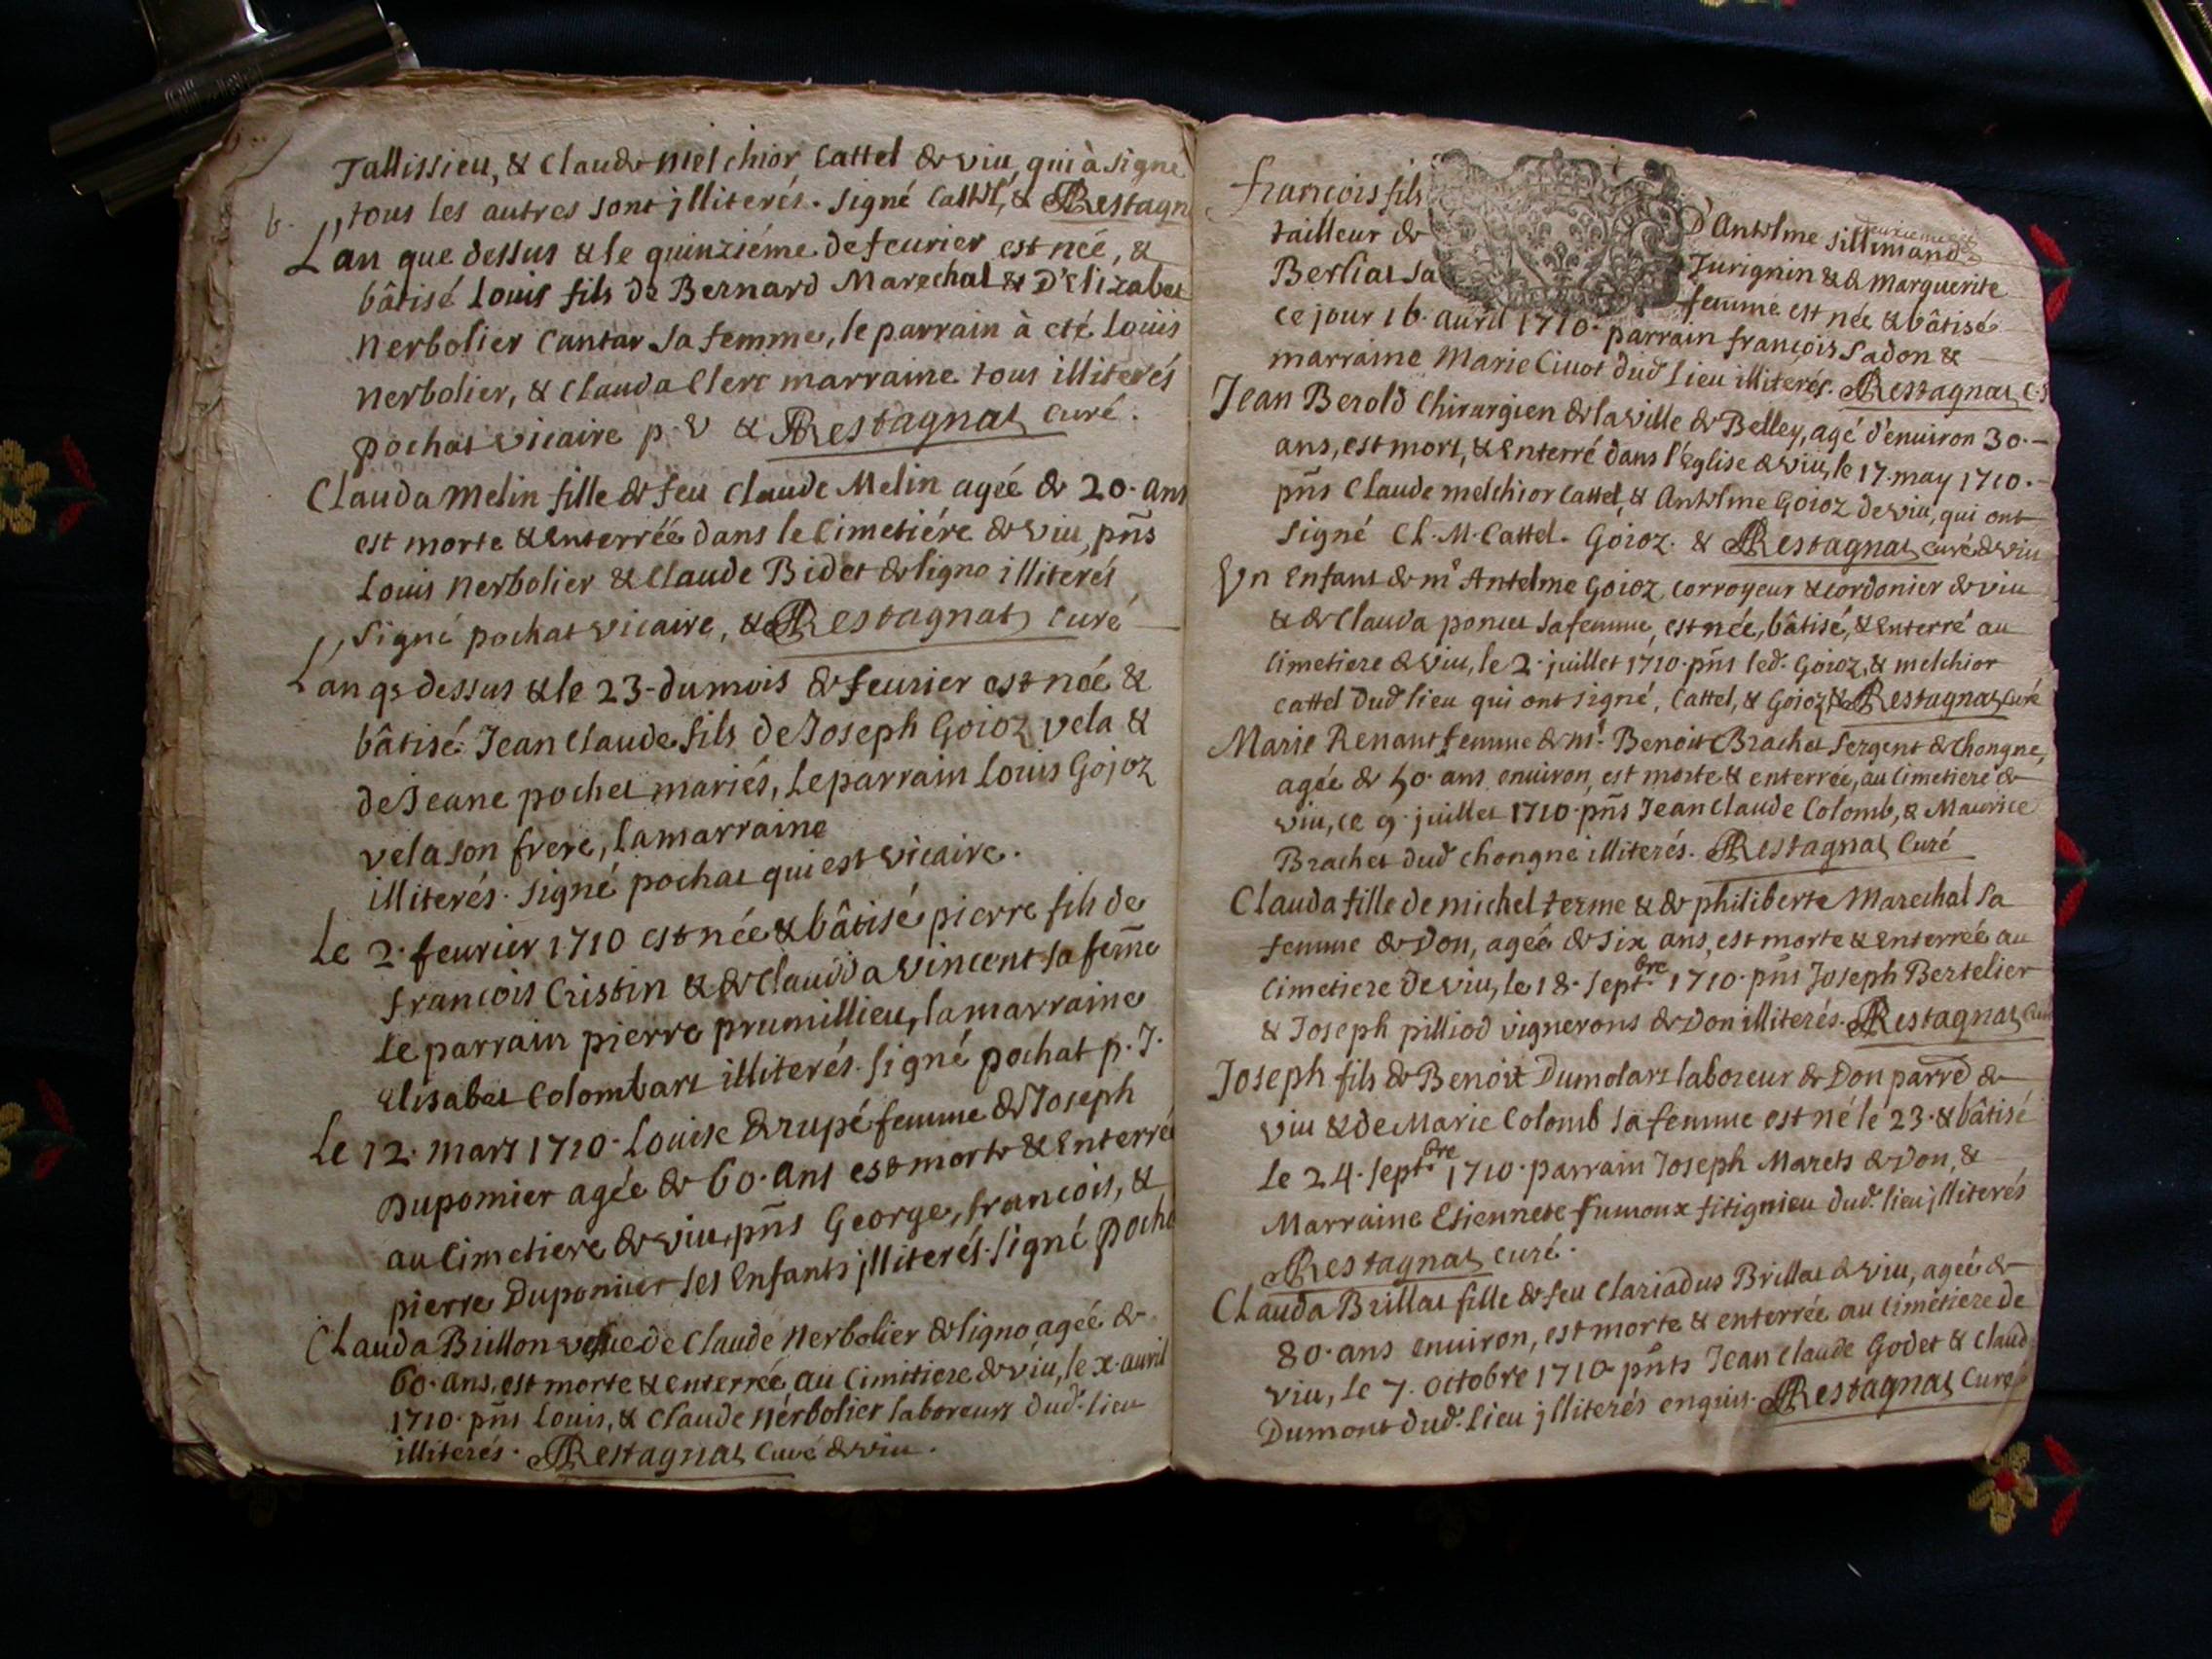 Tallissieu, & Claude melchior Cattel de viu, qui à signé
6.
tous les autres sont jlliterés. Signé Cattel, & Restagn
L'an que dessus & le quinziéme de feurier est née, &
bâtisé Louis fils de Bernard Marechal & D'Elizabet
Nerbolier Cantar sa femme, le parrain à eté Louis
Nerbolier, & Clauda Clerc marraine tous illiterés
pochat vicaire p. v & Restagnat curé.
Clauda Melin fille de feu Claude Melin agée de 20. ans
est morte & Enterrée dans le Cimetiére de viu, pñs
Louis Nerbolier & Claude Bidet de ligno illiterés
Signé pochat vicaire, & Restagnat curé
L'an qs dessus & le 23. du mois de feurier est née &
bâtisé Jean Claude fils de Joseph Goioz vela &
de Jeane pochet mariés, Le parrain Louis Gojoz
vela son frere, la marraine
illiterés. Signé pochat qui est vicaire.
Le 2. feurier 1710 est née & bâtisé pierre fils de
francois Cristin & de Clauda Vincent sa feme
Le parrain pierre prumillieu, la marraine
Elisabet Colombart illiterés. Signé pochat p. J.
Le 12. mars 1710. Louise Derupé femme de Joseph
Dupomier agée de 60. ans est morte & Enterré
au Cimetiere de viu, pñs George, francois, &
pierre Dupomier ses Enfants jlliterés. Signé poch
Clauda Brillon veue de Claude Nerbolier de ligno agée de
60. ans, est morte & enterrée au Cimitiere de viu, le x. auril
1710. pñs Louis, & Claude Nerbolier laboreurs dud. lieu
illiterés. Restagnat Curé de viu.
françois fils D'Antelme Sillimand
tailleur de Turignin & de Marguerite
Berliat sa femme est née & bâtisé
ce jour 16. auril 1710. parrain françois Sadon &
marraine Marie Ciuot dud lieu illiterés. Restagnat
Jean Berold Chirurgien de la ville de Belley, agé d'enuiron 30.
ans, est mort, & Enterré dans l'Eglise de viu, le 17. may 1710.
pñs Claude melchior Cattel, & Antelme Goioz de viu, qui ont
signé Cl. M. Cattel. Goioz. & Restagnat curé de viu
Vn Enfant de mr Antelme Goioz corroyeur & cordonier de viu
& de Clauda poncet sa femme, est née, bâtisé, & Enterré au
Cimetiere de viu, le 2. juillet 1710. pñs led. Goioz, & melchior
Cattel dud lieu qui ont signé, Cattel, & Goioz, & Restagnat curé
Marie Renaut femme de mr. Benoit Brachet Sergent de Chongne,
agée de 50. ans enuiron, est morte & enterrée, au Cimetiere de
viu, ce 9. juillet 1710. pñs Jean Claude Colomb, & Maurice
Brachet dud Chongne illiterés. Restagnat Curé
Clauda fille de michel terme & de philiberte Marechal sa
femme de Don, agée de six ans, est morte & enterrée au
Cimetiere de viu, le 18. septbre 1710. pñs Joseph Bertelier
& Joseph pilliod vignerons de Don illiterés. Restagnat
Joseph fils de Benoit Dumolart laboreur de Don parre de
viu & de Marie Colomb sa femme est né le 23. & bâtisé
le 24. septbre 1710. parrain Joseph Marets de Don, &
Marraine Etiennete fumoux fitignieu dud. lieu jlliterés
Restagnat curé.
Clauda Brillat fille de feu Clariadus Brillat de viu, agée de
80. ans enuiron, est morte & enterrée au Cimetiere de
viu, le 7. octobre 1710. pñts Jean Claude Godet & Claud
Dumont dud. lieu jlliterés enquis. Restagnat Curé